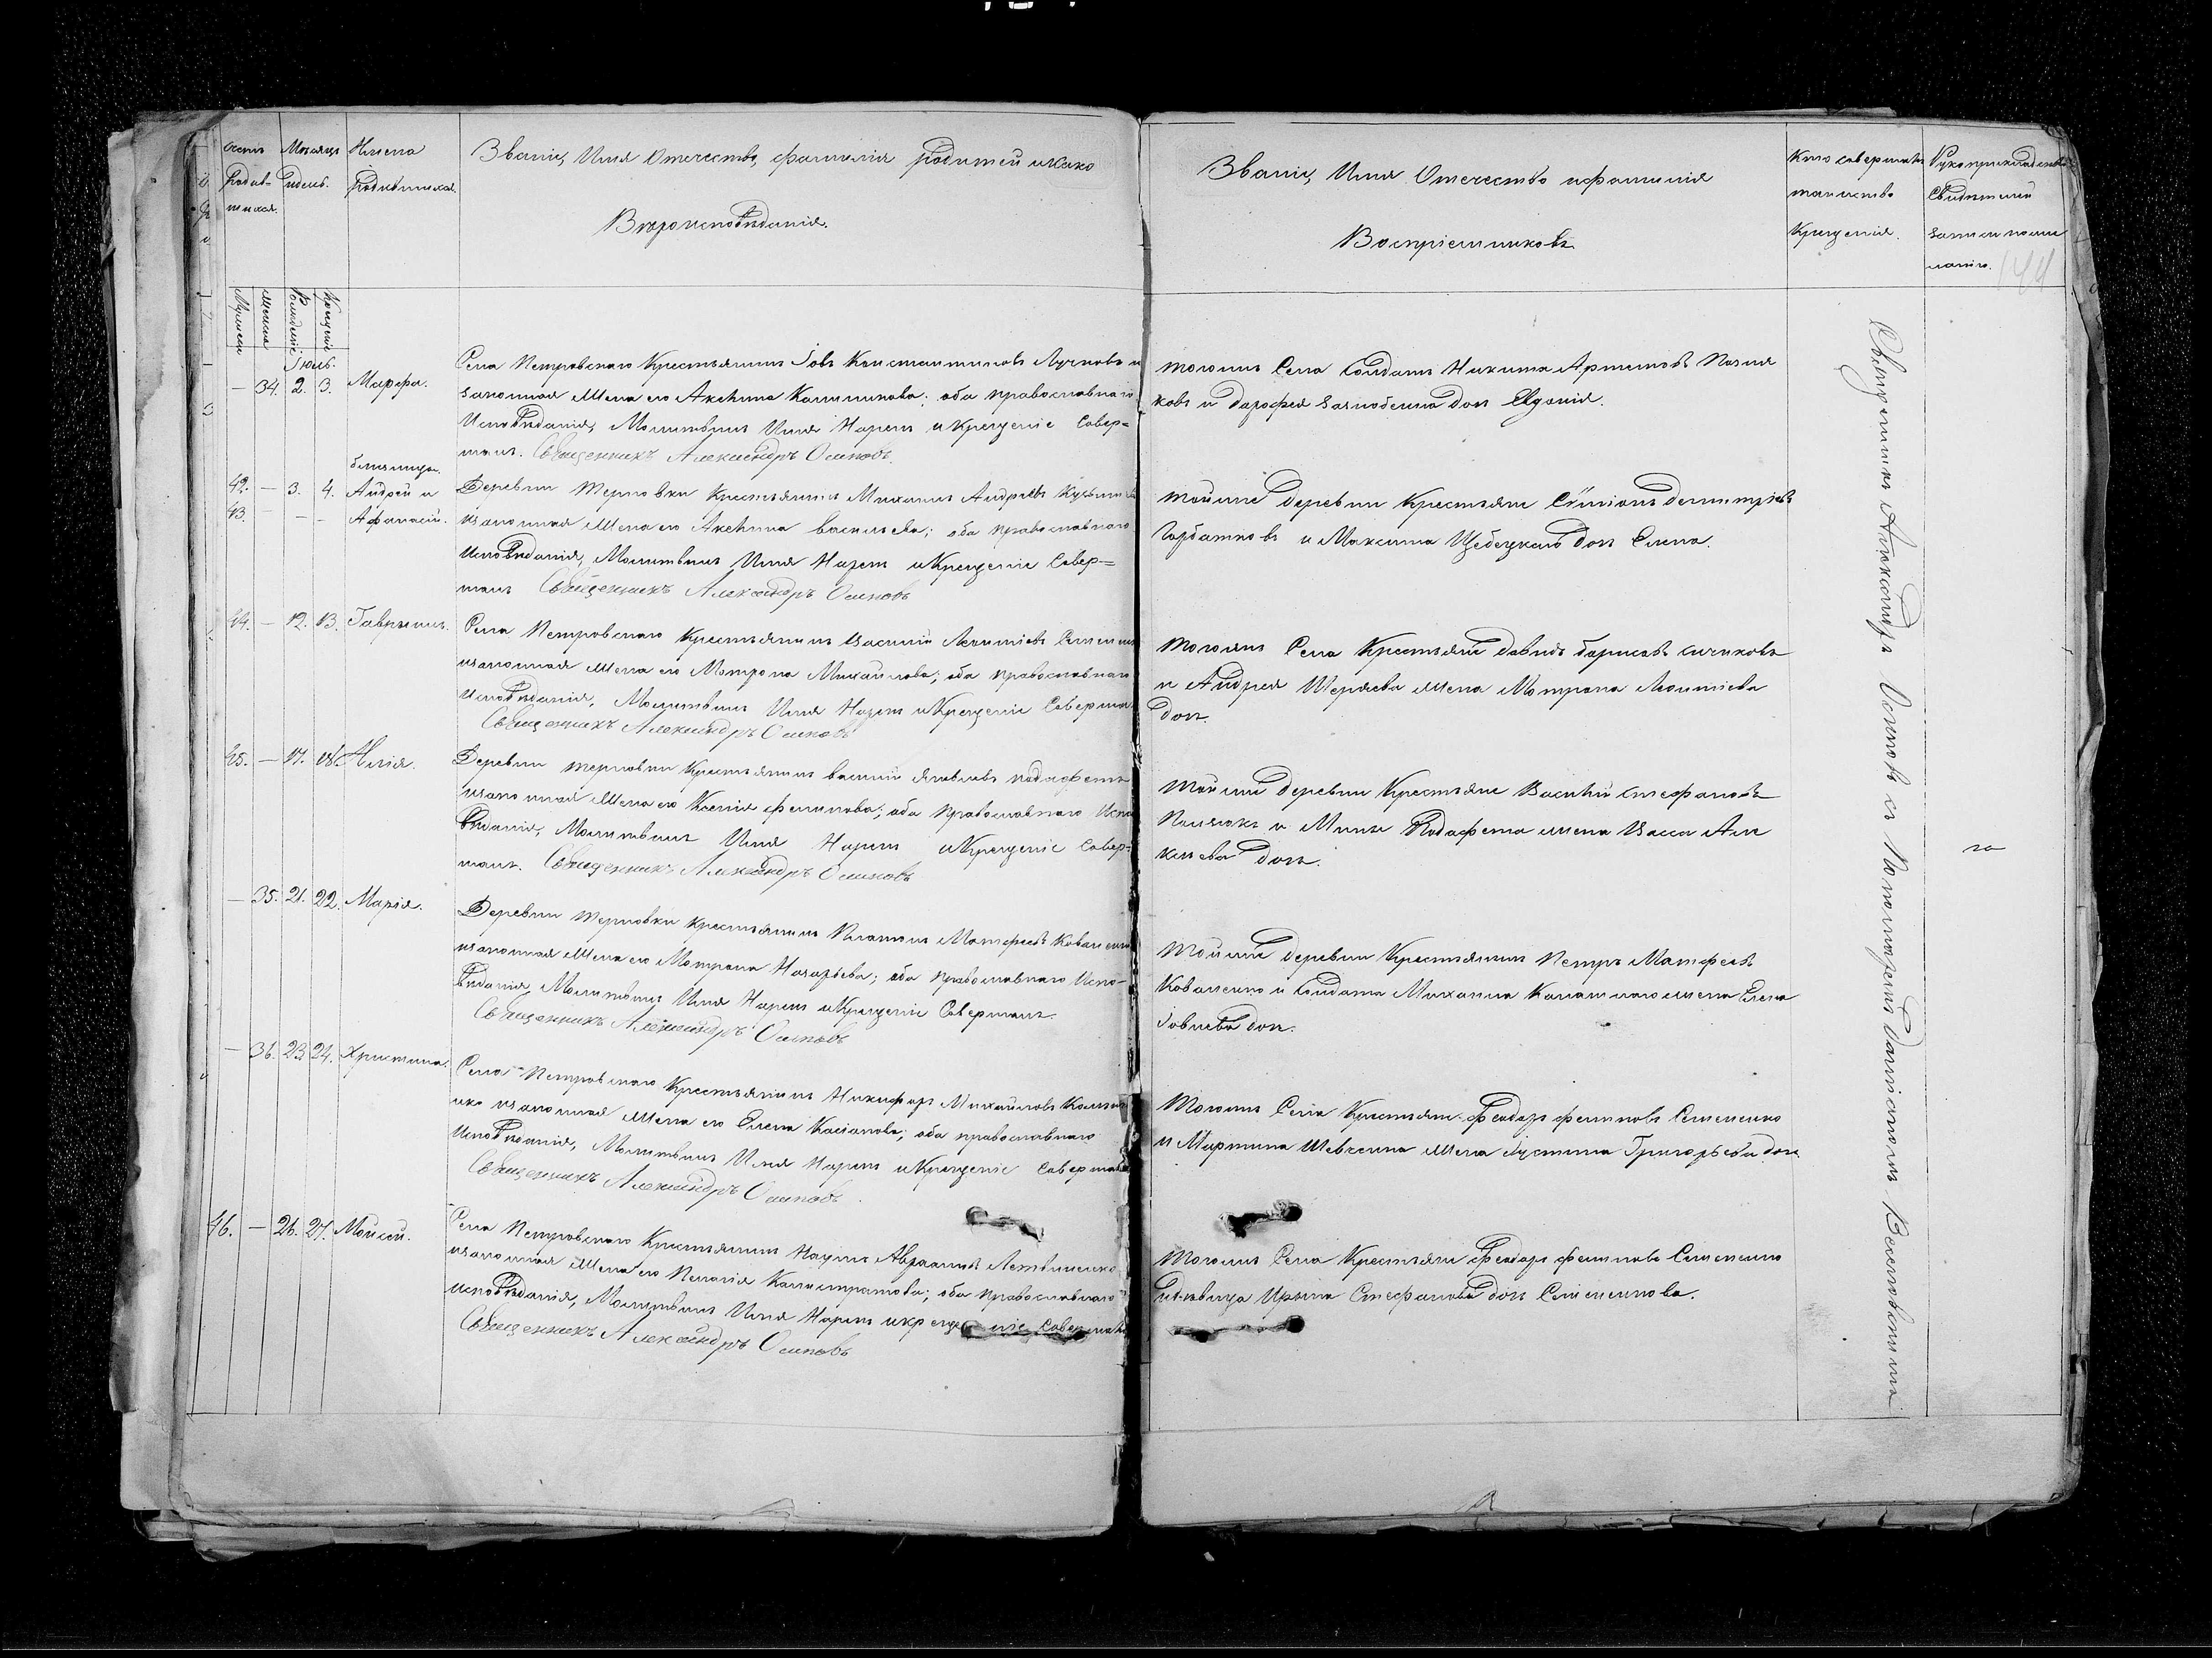 Счетъ Родив-
шихся.
Мѣсяцъ
и день.
Имена
Родившихся.
Званіе, Имя Отечество, фамилія родителей и какого
Вѣроисповѣданія.
Званіе, Имя Отечество и фамилія
Воспріемниковъ
Кто совершалъ
таинство
Крещенія.
Рукоприкладство
Свидѣтелей
записи по же
ланію.
144
Мужеск
Женска
Рожденіе
Крещеніе
Іюль.
— 34. 2. 3. Марфа.
Села Петровскаго Крестьянинъ Іовъ Константиновъ Лучковъ и
законная Жена его Аксенія ; оба православнаго
Исповѣданія, Молитвилъ Имя Нарекъ и Крещеніе Совер=
шалъ. Священникъ Александръ Осиповъ.
тогожъ Села Солдатъ Никита Артемовъ
ковъ и Дарофея дочь Евдокія.
близнецы.
42. — 3. 4. Андрей и
43. — — Афанасій.
Деревни Терновки Крестьянинъ Михаилъ Андреевъ
и законная Жена его Аксенія Васильева; оба православнаго
Исповѣданія, Молитвилъ Имя Нарекъ и Крещеніе Совер=
шалъ Священникъ Александръ Осиповъ
тойже деревни Крестьяне Сѵміонъ Демитріевъ
Горбатковъ и Максима Щебецкаго дочь Елена.
44. — 12. 13. Гавріилъ.
Села Петровскаго Крестьянинъ Василій Леонтіевъ
и законная Жена его Матрона Михайлова; оба православнаго
Исповѣданія, Молитвилъ Имя Нарекъ и Крещеніе Совершалъ
Священникъ Александръ Осиповъ
тогожъ Села Крестьяне Давидъ Борисовъ
и Андрея жена Матрона Леонтіева
дочь.
45. — 17. 18. Илія.
Деревни терновки Крестьянинъ Василій Яковлевъ
и законная Жена его Ксенія Филипова; оба Православнаго Испо
вѣданія, Молитвилъ Имя Нарекъ и Крещеніе Совер=
шалъ. Священникъ Александръ Осиповъ
тойже деревни Крестьяне Василій Стефановъ
и жена Васса Але
ксѣева дочь.
— 35. 21. 22. Марія.
Деревни терновки крестьянинъ Платонъ Матфеевъ
и законная Жена его Матрона Назарьева; оба православнаго Испо-
вѣданія, Молитвилъ Имя Нарекъ и Крещеніе Совершалъ.
Священникъ Александръ Осиповъ
тойже деревни Крестьянинъ Петръ Матфеевъ
Коваленко и Солдата Михаила жена Елена
Іовлева дочь.
— 36. 23 24. Христина.
Села Петровскаго Крестьянинъ Никифоръ Михайловъ
нко и законная Жена его Елена Касіанова; оба православнаго
Исповѣданія, Молитвилъ Имя Нарекъ и Крещеніе Совершалъ
Священникъ Александръ Осиповъ.
Тогожъ Села Крестьяне Феодоръ Филиповъ Семененко
и Мартина Шевченка жена Іустина Григорьева дочь.
46. — 26. 27. Мойсей.
Села Петровскаго Крестьянинъ Наумъ Авраамовъ
и законная Жена его Пелагія Калистратова; оба православнаго
исповѣданія, Молитвилъ Имя Нарекъ и крещеніе Совершалъ
Священникъ Александръ Осиповъ
Тогожъ Села Крестьяне Феодоръ Филиповъ Семененко
и дѣвица Ирина Стефанова дочь
Священникъ Александръ Осиповъ съ